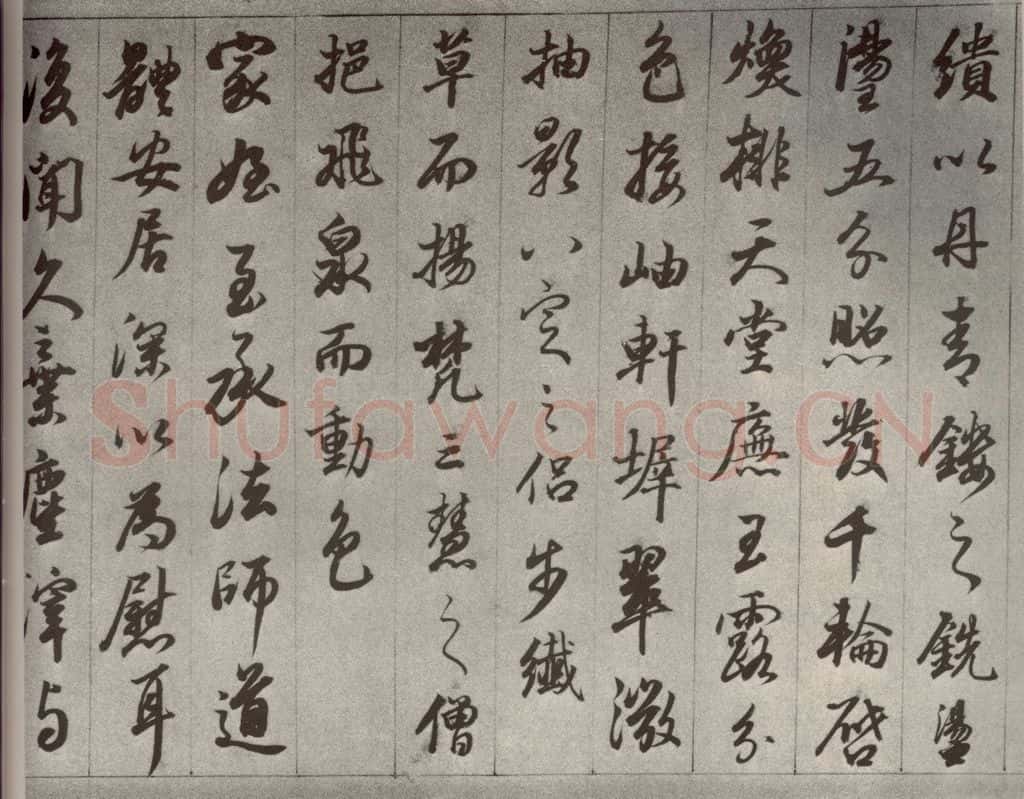 繢以丹青鏤之銑盪
璗五分照發千輪啓
煥排天堂廡玉露分
色接岫軒墀翠澂
抽影八定之侶步纖
草而揚梵三慧之僧
挹飛泉而動色
家姪至承法師道
體安居深以為慰耳
復聞久棄塵滓与
Shufawang.CN